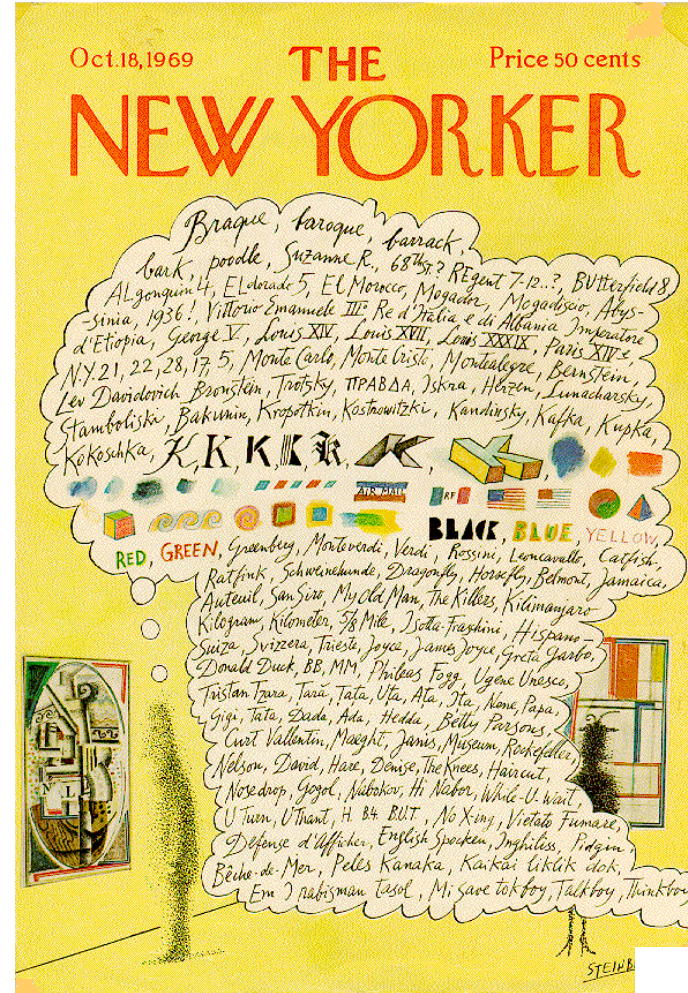 Oct.18,1969
THE
Price 50 cents
NEW YORKER
Braque, baroque, barrack,
bark, poodle, Suzanne R., 68th ST.? REgent 7-12..?, BUtterfield 8,
ALgonquin 4, ELdorado 5, El Morocco, Mogador, Mogadiscio, Abys-
-sinia, 1936!, Vittorio Emanuele III Re d'Italia e di Albania Imperatore
d'Etiopia, George V, Louis XIV, Louis XVII, Louis XXXIX, Paris XIVe
N.Y. 21, 22, 28, 17, 5, Monte Carlo, Monte Cristo, Montealegre, Bernstein,
Lev Davidovich Bronstein, Trotzky, ПРАВДА, Iskra, Herzen, Lunacharsky,
Stamboliski, Bakunin, Kropotkin, Kostrowitzki, Kandinsky, Kafka, Kupka,
Kokoschka, K, K, K, K, k, K, K,
AIR MAIL
RF
BLACK, BLUE, YELLOW,
RED, GREEN, Greenberg, Monteverdi, Verdi, Rossini, Leoncavallo, Catfish,
Ratfink, Schweinehunde, Dragonfly, Horsefly, Belmont, Jamaica,
Auteuil, San Siro, My Old Man, The Killers, Kilimanjaro
Kilogram, Kilometer, 5/8 Mile, Isotta-Fraschini, Hispano-
Suiza, Svizzera, Trieste, Joyce, James Joyce, Greta Garbo,
Donald Duck, BB, MM, Phileas Fogg, Ugene Unesco,
Tristan Tzara, Tara, Tata, Uta, Ata, Ita, None, Papa,
Gigi, Tata, Dada, Ada, Hedda, Betty Parsons,
Curt Vallentin, Maeght, Janis, Museum, Rockefeller,
Nelson, David, Hare, Denise, The Knees, Haircut,
Nosedrop, Gogol, Nabokov, Hi Nabor, While-U-Wait,
U Turn, U Thant, H. B4. B.U.T., No X-ing, Vietato Fumare,
Défense d'Afficher, English Spocken, Inghiliss, Pidgin,
Bêche-de-Mer, Peles Kanaka, Kaikai liklik dok,
Em I rabisman tasol, Mi save tok boy, Talkboy, Thinkboy
STEINB